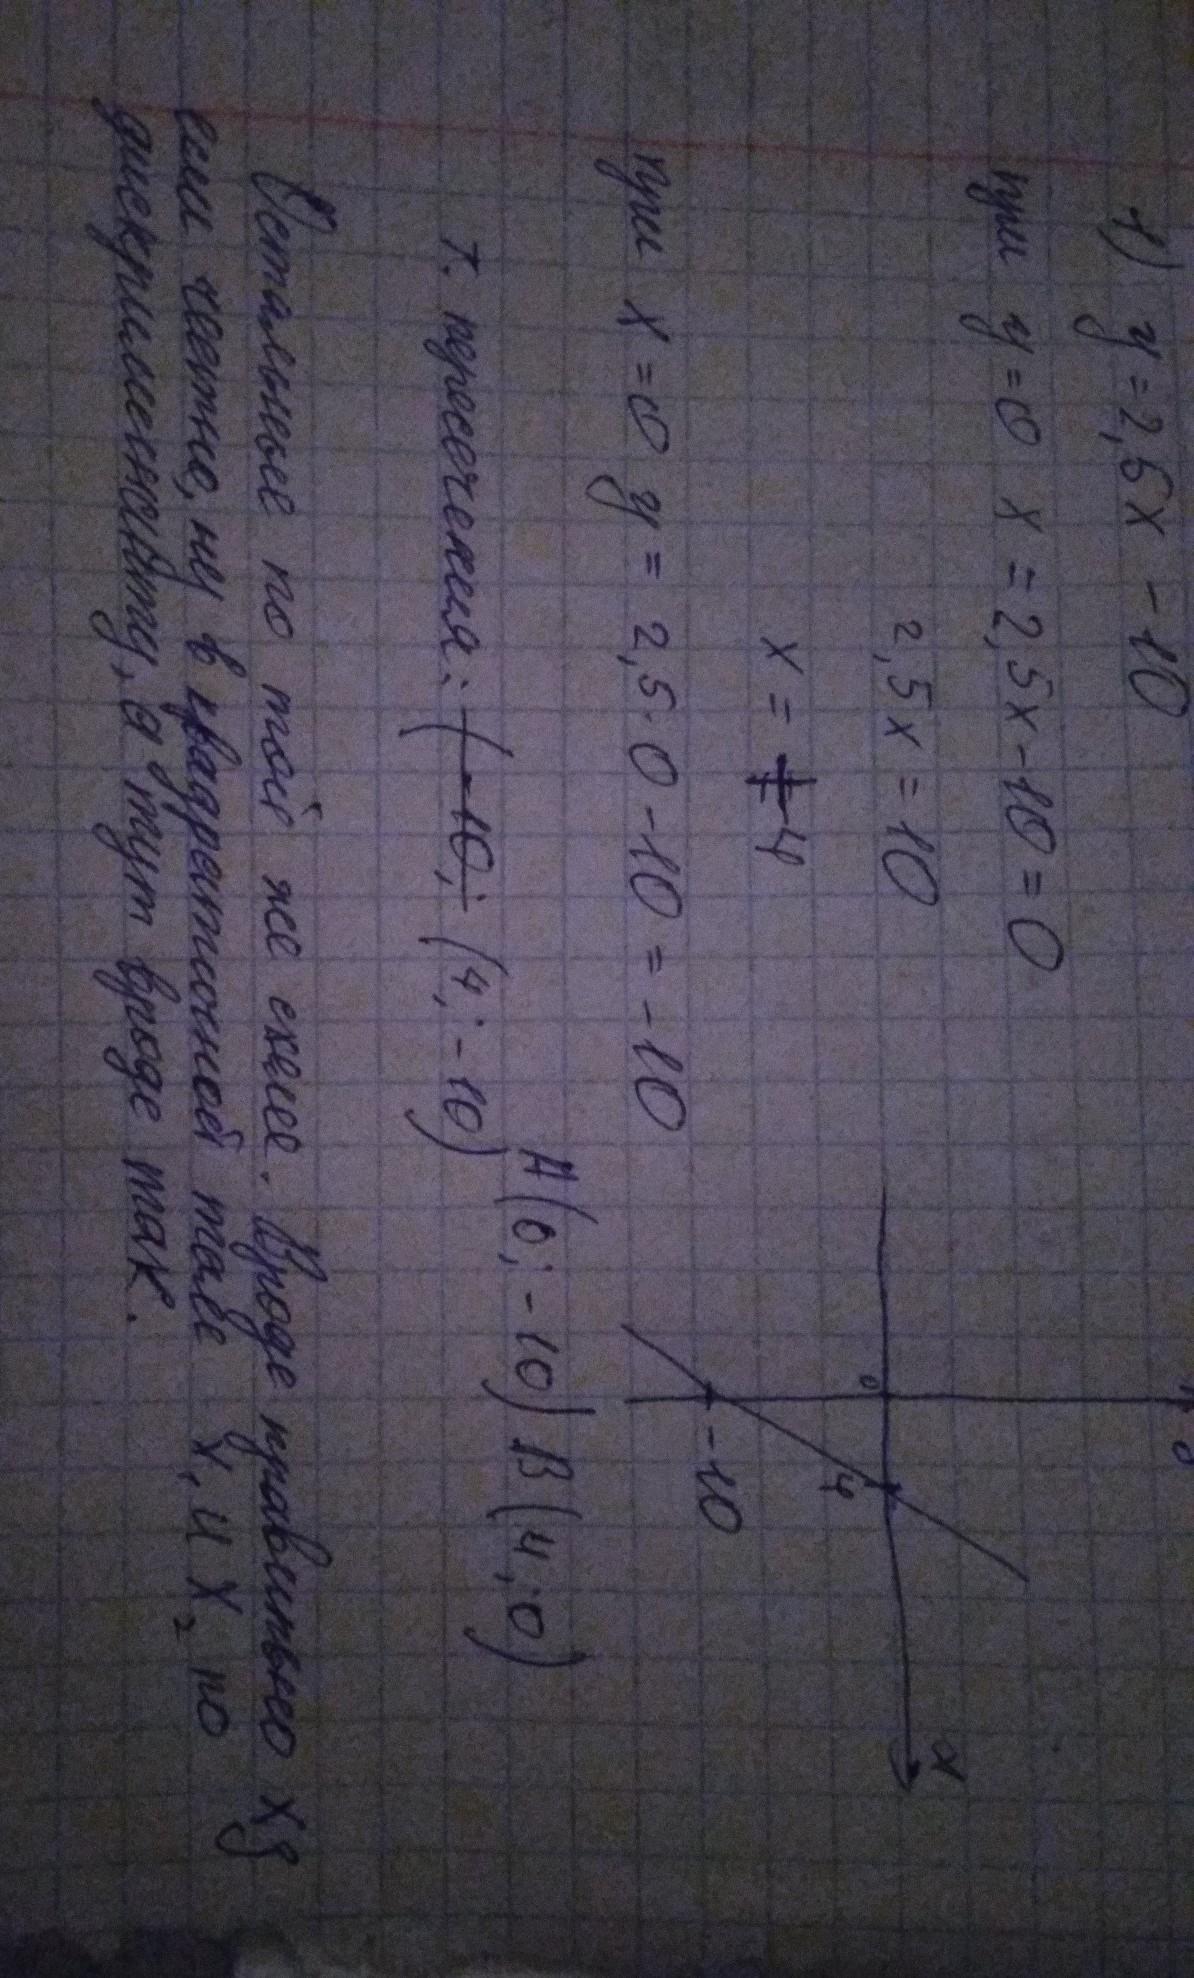 1) y = 2,5x - 10
при y = 0 x = 2,5x - 10 = 0
2,5x = 10
x = 4
при x = 0 y = 2,5 · 0 - 10 = -10
т. пересечения: (-10; (4; -10)
A(0; -10) B(4; 0)
0
4
-10
x
Остальные по той же схеме. Вроде правильно хз
если честно, ну в квадратной таве x₁ и x₂ по
дискриминанту, а тут вроде так.